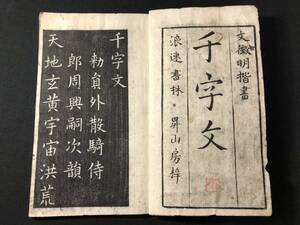 文徴明楷書
千字文
浪速書林 昇山房梓
千字文
勅員外散騎侍
郎周興嗣次韻
天地玄黄宇宙洪荒